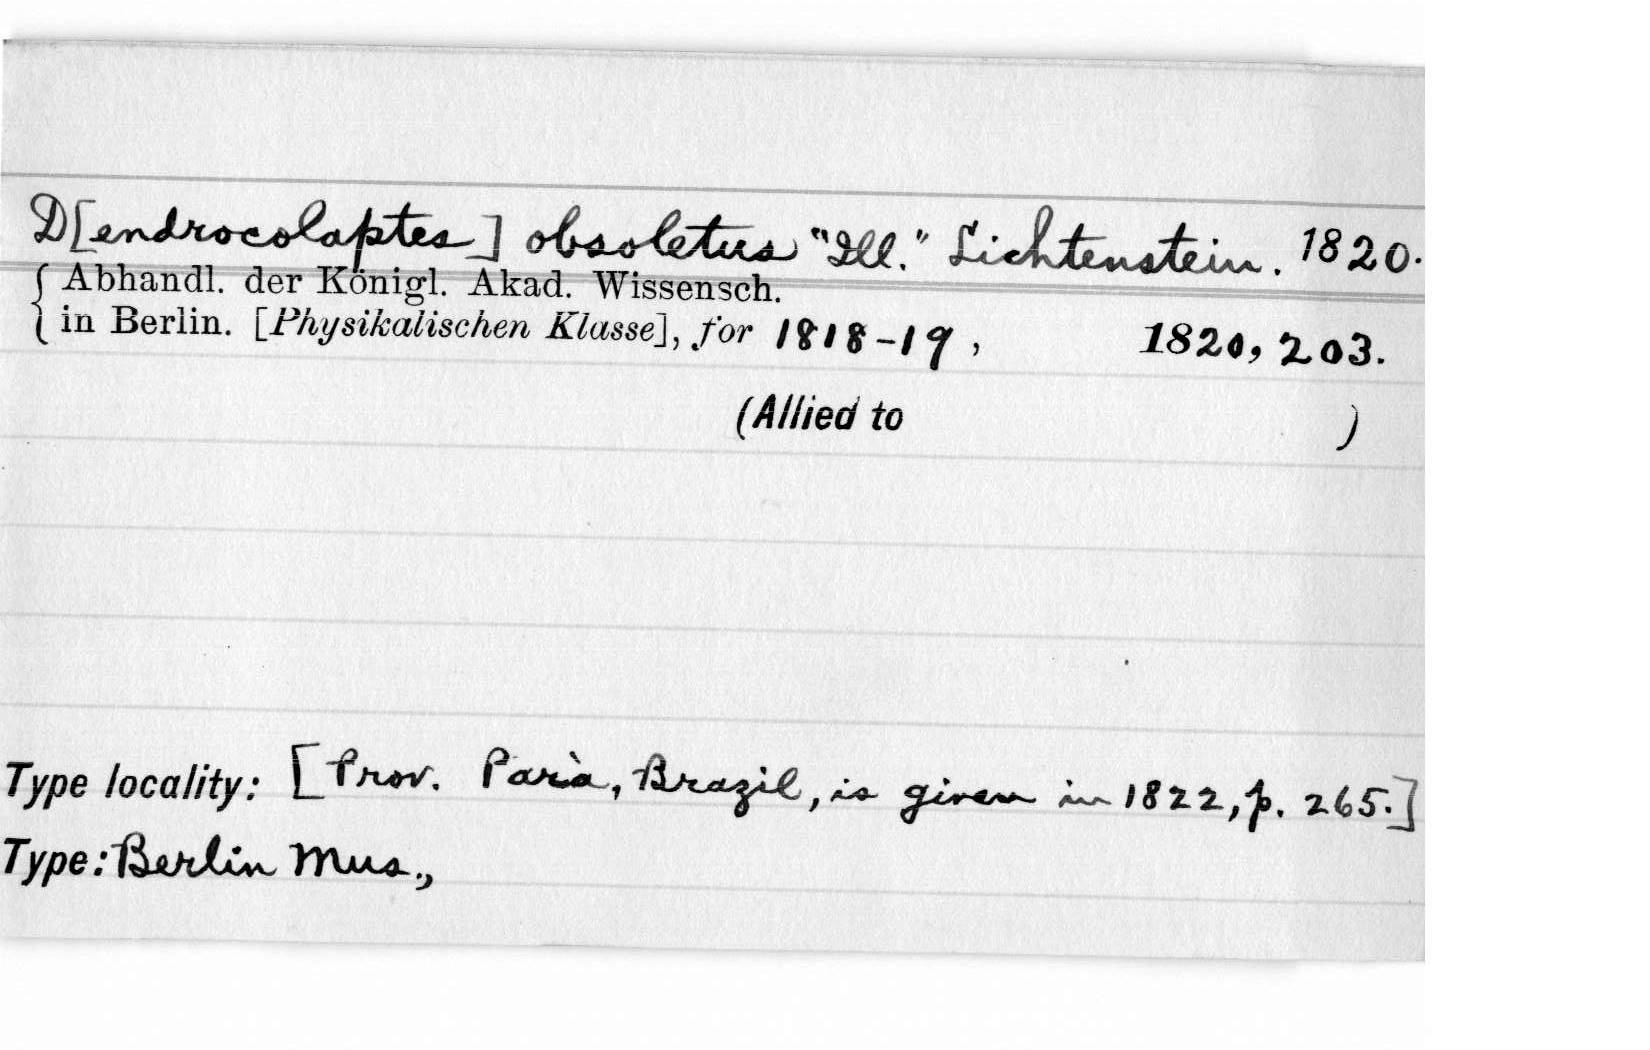 D[endrocolaptes] obsoletus "Ill." Lichtenstein. 1820.
{ Abhandl. der Königl. Akad. Wissensch.
in Berlin. [Physikalischen Klasse], for 1818-19, 1820, 203.
(Allied to )
Type locality: [Prov. Parà, Brazil, is given in 1822, p. 265.]
Type: Berlin Mus.,